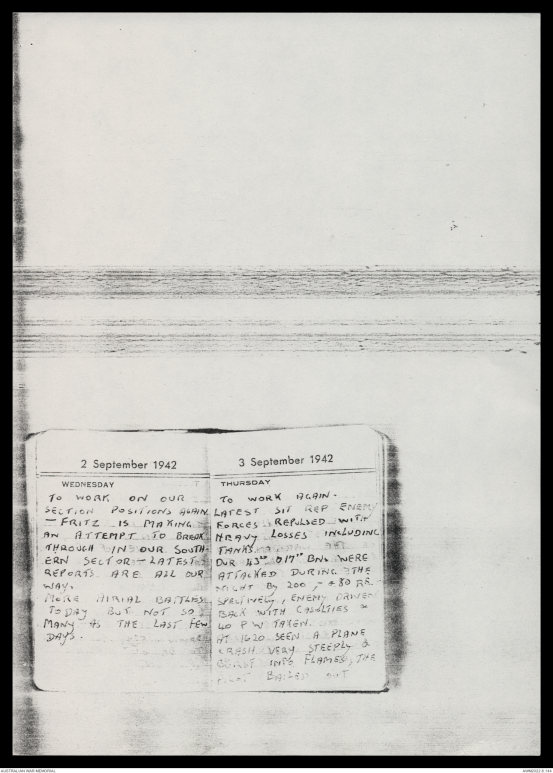 2 September 1942
WEDNESDAY
TO WORK ON OUR
SECTION POSITIONS AGAIN
— FRITZ IS MAKING
AN ATTEMPT TO BREAK
THROUGH IN OUR SOUTH-
ERN SECTOR — LATEST
REPORTS ARE ALL OUR
WAY.
MORE AIRIAL BATTLES
TODAY BUT NOT SO
MANY AS THE LAST FEW
DAYS.
3 September 1942
THURSDAY
TO WORK AGAIN.
LATEST SIT REP ENEMY
FORCES REPULSED WITH
HEAVY LOSSES INCLUDING
TANKS
OUR 43RD 17TH BNS WERE
ATTACKED DURING THE
NIGHT BY 200 80 RE-
SPECTIVELY, ENEMY DRIVEN
BACK WITH CASULTIES &
40 P W TAKEN.
AT 1620 SEEN A PLANE
CRASH VERY STEEPLY &
BURST INTO FLAMES, THE
PILOT BAILED OUT
AUSTRALIAN WAR MEMORIAL